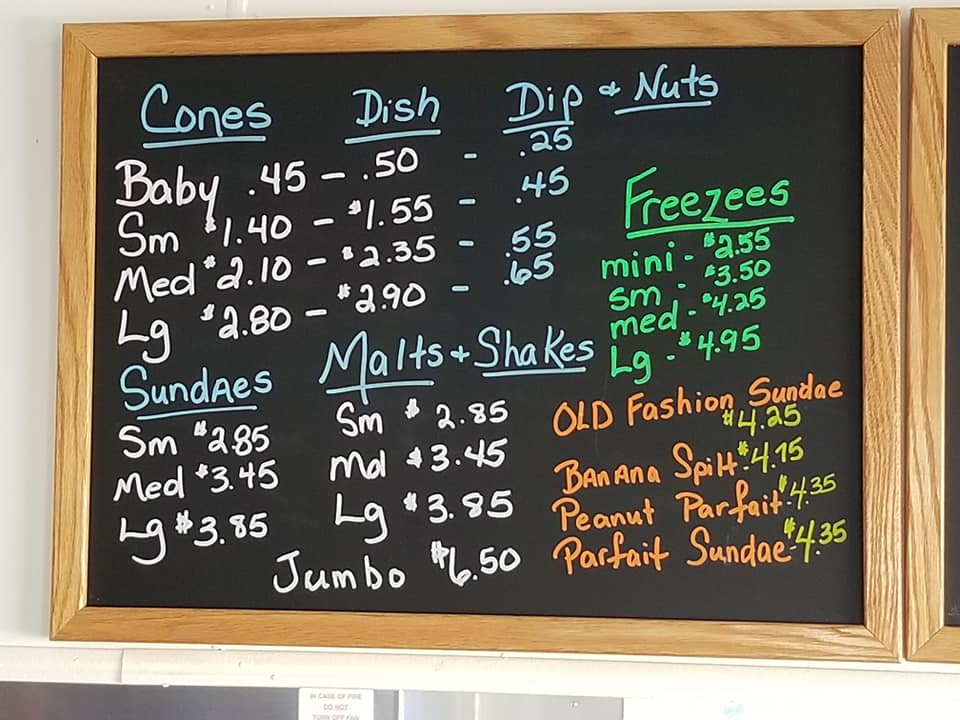 Cones Dish Dip & Nuts
Baby .45 - .50 - .25
Sm $1.40 - $1.55 - .45
Med $2.10 - $2.35 - .55
Lg $2.80 - $2.90 - .65
Freezees
mini - $2.55
sm - $3.50
med - $4.25
Lg - $4.95
Sundaes
Sm $2.85
Med $3.45
Lg $3.85
Malts + Shakes
Sm $ 2.85
Md $3.45
Lg $3.85
Jumbo $6.50
OLD Fashion Sundae
$4.25
Banana Spilt $4.15
Peanut Parfait $4.35
Parfait Sundae $4.35
IN CASE OF FIRE
DO NOT
TURN OFF FAN